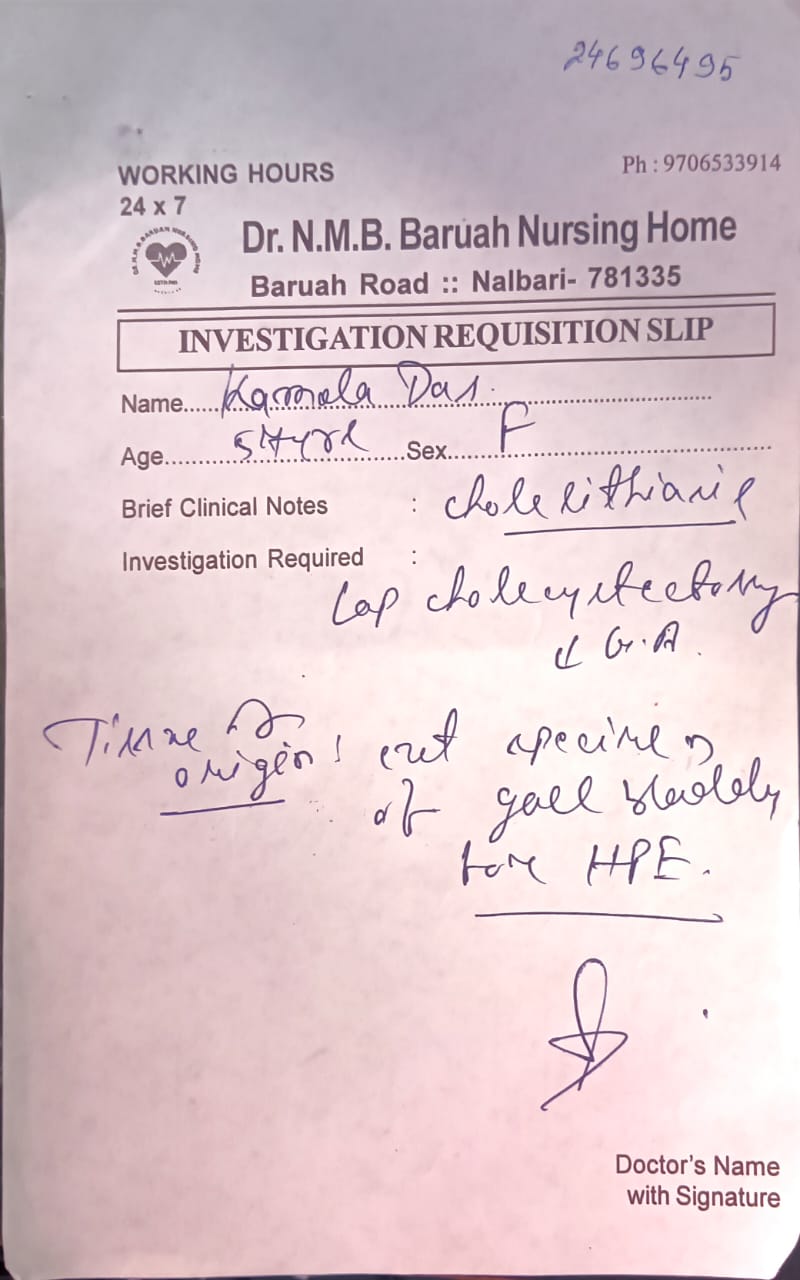 24696495
WORKING HOURS
24 x 7
Ph : 9706533914
Dr. N.M.B. Baruah Nursing Home
Baruah Road :: Nalbari- 781335
INVESTIGATION REQUISITION SLIP
Name......Kamala Das.
Age..........Sex.....F
Brief Clinical Notes : cholelithiasis
Investigation Required :
Lap cholecystectomy
G.A.
Tissue of origin : cut specimen
of gall bladder
for HPE.
Doctor's Name
with Signature